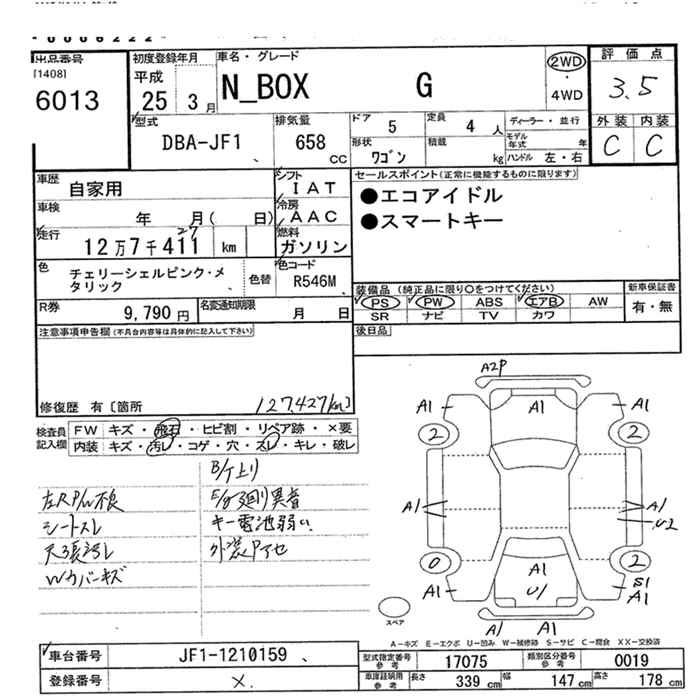 出品番号
[1408]
6013
初度登録年月
平成
25 3月
車名・グレード
N_BOX G
2WD
・
4WD
評価点
3.5
外装 内装
C C
型式
DBA-JF1
排気量
658
cc
ドア 5
定員 4人
形状 ワゴン
積載 kg
ディーラー・並行
モデル年式 年
ハンドル 左・右
車歴 自家用
車検 年 月( 日)
走行 12万7千411 km
27
シフト IAT
冷房 AAC
燃料 ガソリン
セールスポイント(正常に機能するものに限ります)
●エコアイドル
●スマートキー
色 チェリーシェルピンク・メタリック
色替
色コード R546M
装備品(純正品に限り○をつけてください)
PS PW ABS エアB AW
SR ナビ TV カワ
新車保証書
有・無
R券 9,790円
名変通知期限 月 日
後日品
注意事項申告欄(不具合内容等は具体的に記入して下さい)
修復歴 有〔箇所
127,427km〕
検査員記入欄
FW キズ・飛石・ヒビ割・リペア跡・×要
内装 キズ・汚レ・コゲ・穴・スレ・キレ・破レ
B/T上り
左RP/w不良
E/g廻り異音
シートスレ
キー電池弱い
天張汚レ
外装Pアセ
Wカバーキズ
A2P
A1 A1 A1
2 2
A1 A1
U2
0 2
A1 A1 S1
A1
U1
A1 A1
スペア
A-キズ E-エクボ U-凹み W-補修跡 S-サビ C-腐食 XX-交換済
車台番号 JF1-1210159
登録番号 ×.
型式指定番号 参考 17075
類別区分番号 参考 0019
車庫証明用 参考 長さ 339cm 幅 147cm 高さ 178cm